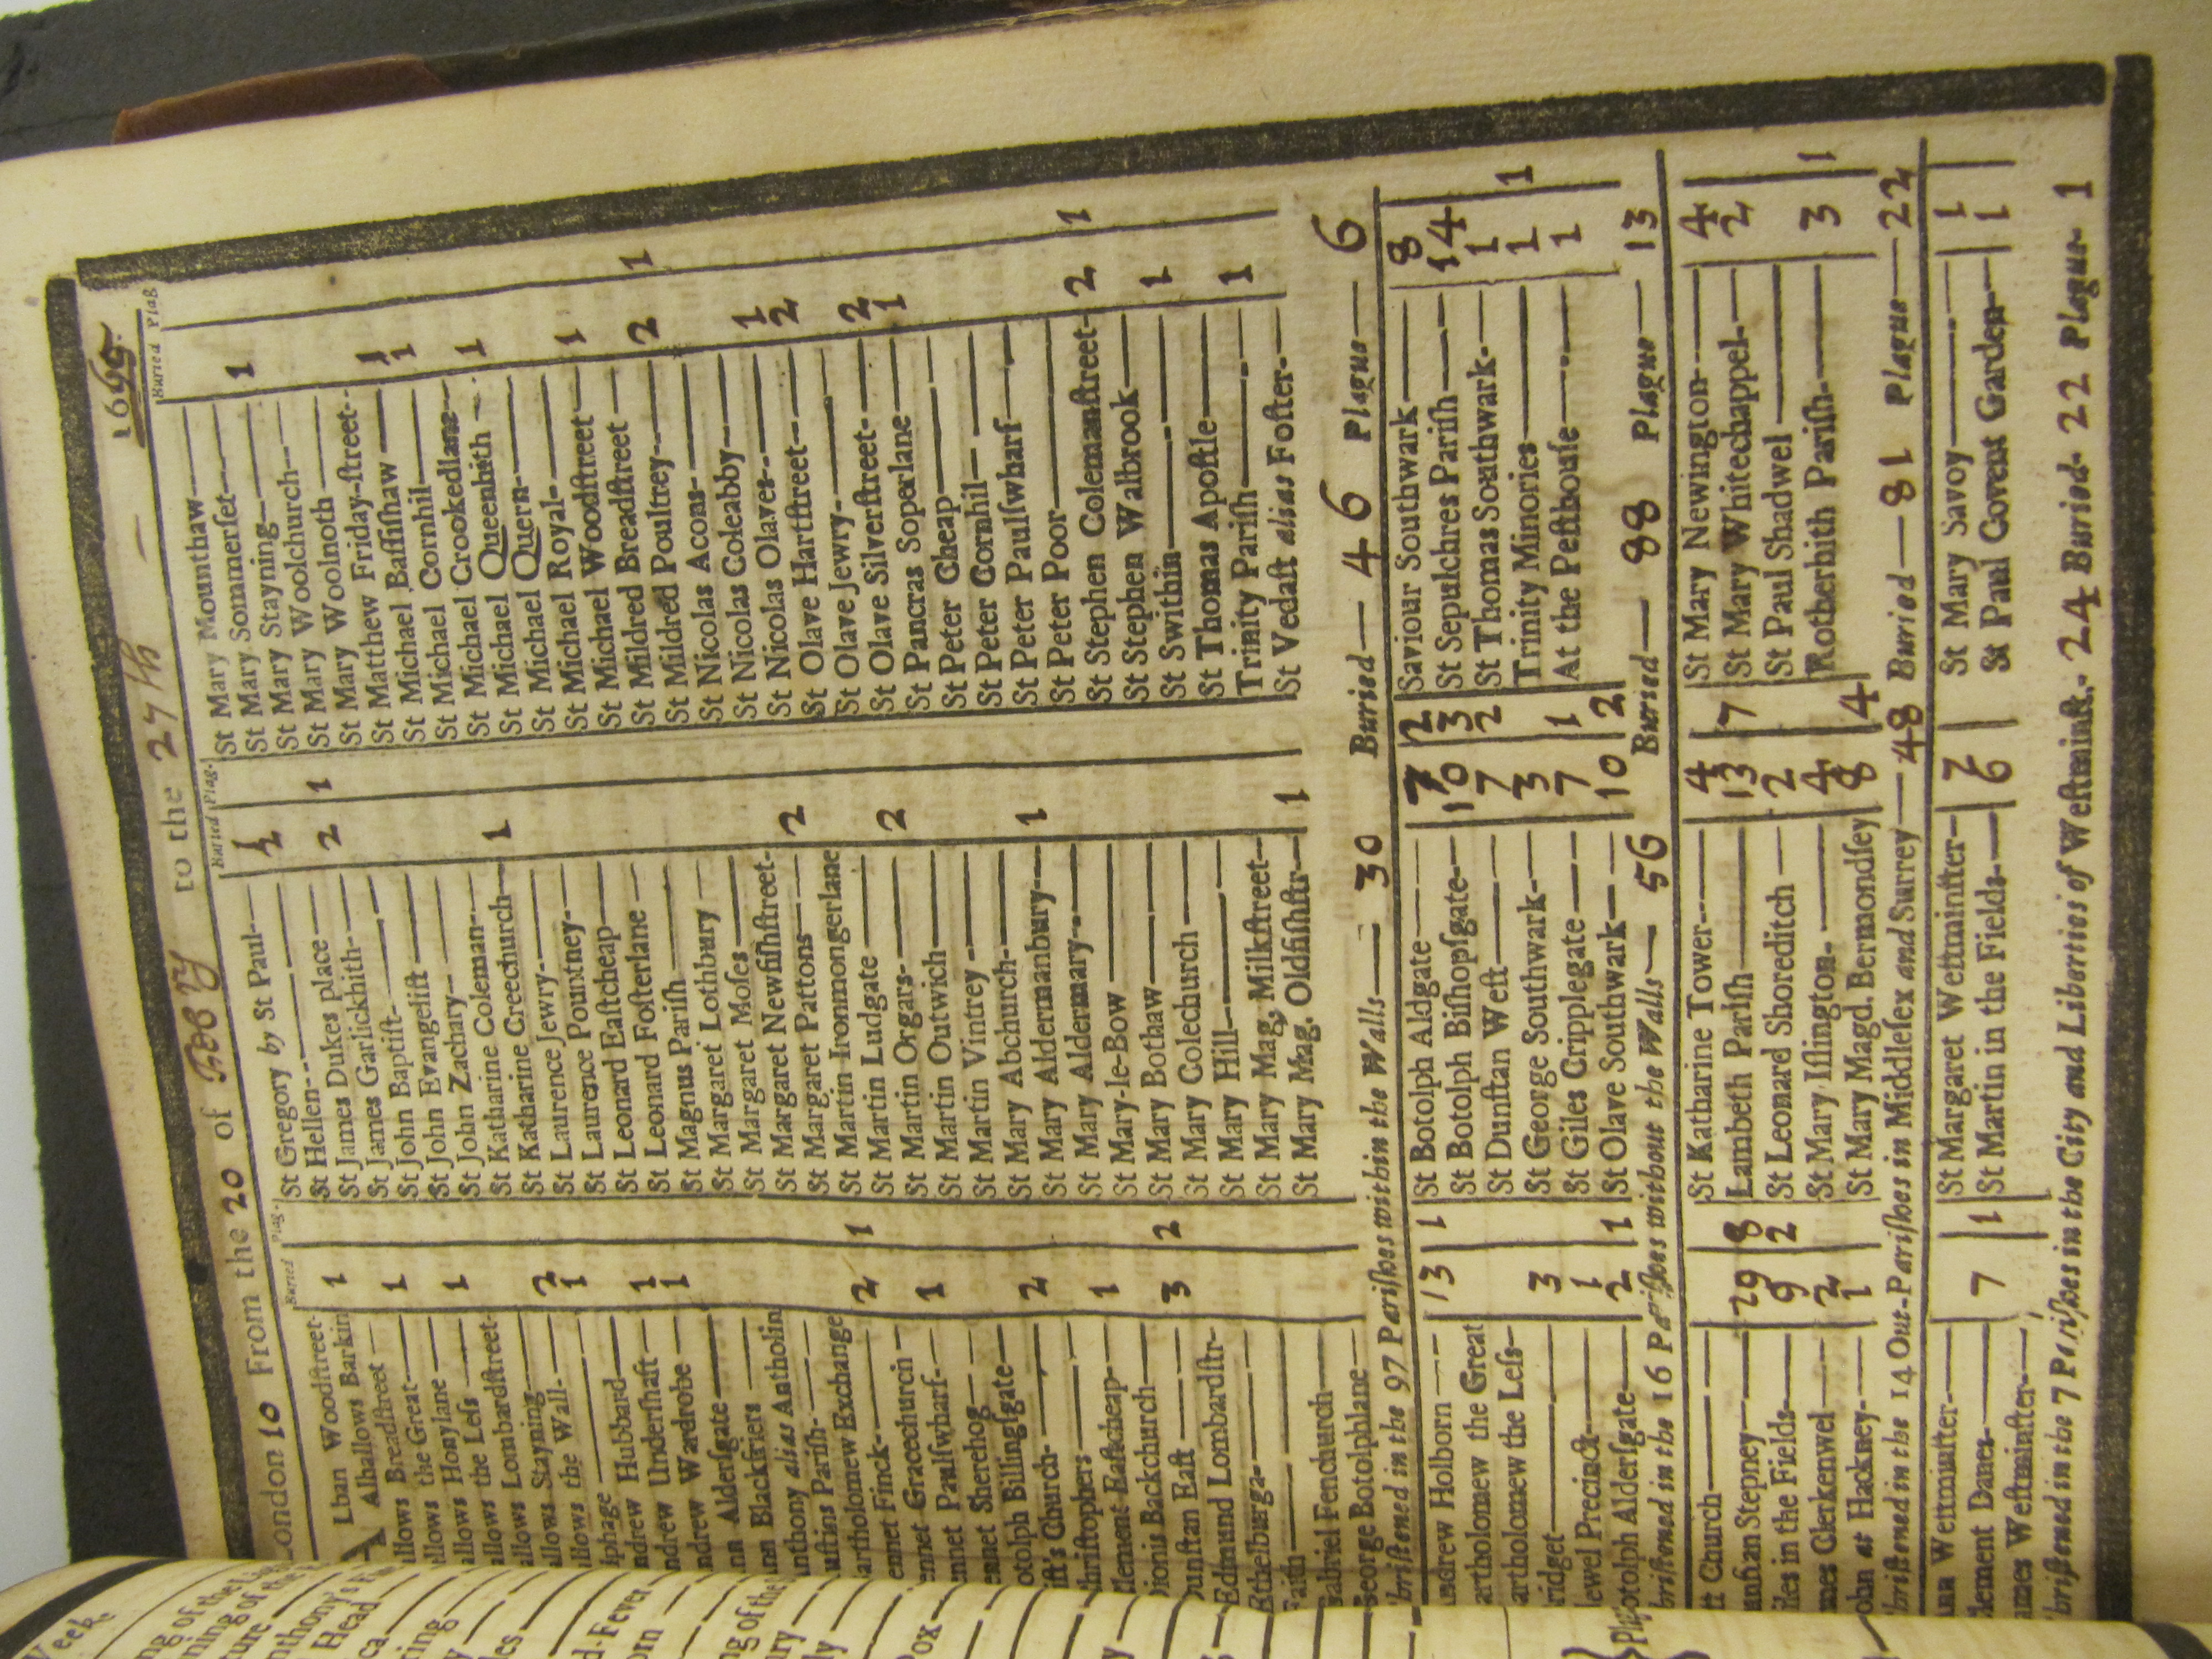 London 10 From the 20 of Feb'y to the 27th — 1665
Buried Plag.
Lban Woodstreet- 1
Alhallows Barkin
allows Breadstreet — 1
allows the Great—
allows Honylane — 1
allows the Leſs —
allows Lombardſtreet-
allows Stayning— 2
allows the Wall- 1
lphage —
ndrew Hubbard— 1
ndrew Underſhaft— 1
ndrew Wardrobe —
nn Alderſgate —
nn Blackfriers —
nthony alias Antholin
uſtins Pariſh-
artholomew Exchange 2 1
ennet Finck-
ennet Gracechurch — 1
ennet Paulſwharf-
ennet Sherehog—
otolph Billingſgate— 2
iſt's Church-
hriſtophers — 1
lement Eaſtcheap-
ionis Backchurch— 3 2
unſtan Eaſt —
Edmund Lombardſtr-
Ethelburga-
Faith—
Gabriel Fenchurch—
George Botolphlane—
Buried Plag.
St Gregory by St Paul— 1
St Hellen- 2
St James Dukes place —
St James Garlickhith- 2 1
St John Baptiſt-
St John Evangeliſt —
St John Zachary-
St Katharine Coleman-
St Katharine Creechurch— 1
St Laurence Jewry-
St Laurence Pountney-
St Leonard Eaſtcheap—
St Leonard Foſterlane —
St Magnus Pariſh —
St Margaret Lothbury —
St Margaret Moſes —
St Margaret Newfiſhſtreet-
St Margaret Pattons— 2
St Martin Ironmongerlane
St Martin Ludgate —
St Martin Orgars- 2
St Martin Outwich—
St Martin Vintrey -
St Mary Abchurch-
St Mary Aldermanbury— 1
St Mary Aldermary-
St Mary-le-Bow —
St Mary Bothaw—
St Mary Colechurch —
St Mary Hill—
St Mary Mag, Milkſtreet—
St Mary Mag. Oldfiſhſtr— 1
Buried Plag
St Mary Mounthaw—
St Mary Sommerſet— 1
St Mary Stayning—
St Mary Woolchurch—
St Mary Woolnoth —
St Matthew Friday-ſtreet- 1
St Michael Baſſiſhaw — 1
St Michael Cornhil—
St Michael Crookedlane- 1
St Michael Queenhith —
St Michael Quern-
St Michael Royal- 1
St Michael Woodſtreet —
St Mildred Breadſtreet — 2 1
St Mildred Poultney—
St Nicolas Acons-
St Nicolas Coleabby— 1
St Nicolas Olaves- 2
St Olave Hartſtreet—
St Olave Jewry- 2
St Olave Silverſtreet- 1
St Pancras Soperlane —
St Peter Cheap—
St Peter Cornhil—
St Peter Paulſwharf—
St Peter Poor—
St Stephen Colemanſtreet- 2 1
St Stephen Walbrook—
St Swithin— 1
St Thomas Apoſtle—
Trinity Pariſh— 1
St Vedaſt alias Foſter-
briſtened in the 97 Pariſhes within the Walls— 30 Buried— 46 Plague— 6
ndrew Holborn — 13 1
artholomew the Great
artholomew the Leſs-
ridget— 3
ewel Precinct— 1
otolph Alderſgate— 2 1
St Botolph Aldgate— 7 2
St Botolph Biſhopſgate— 10 3
St Dunſtan Weſt— 7 2
St George Southwark— 3
St Giles Cripplegate — 7 1
St Olave Southwark— 10 2
Saviour Southwark— 8
St Sepulchres Pariſh— 14
St Thomas Southwark- 1
Trinity Minories— 1 1
At the Peſthouſe— 1
briſtened in the 16 Pariſhes without the Walls— 56 Buried— 88 Plague— 13
tt Church—
unſtan Stepney— 29 8
iles in the Fields— 9 2
mes Clerkenwel— 2
ohn at Hackney- 1
St Katharine Tower— 4
Lambeth Pariſh— 13 7
St Leonard Shoreditch — 2
St Mary Iſlington- 4
St Mary Magd. Bermondſey 8 4
St Mary Newington— 4
St Mary Whitechappel- 2
St Paul Shadwel —
Rotherhith Pariſh- 3 1
briſtened in the 14 Out-Pariſhes in Middleſex and Surrey— 48 Buried— 81 Plague— 22
nn Weſtminſter-
lement Danes— 7 1
ames Weſtminſter—
St Margaret Weſtminſter— 7
St Martin in the Fields— 6
St Mary Savoy— 1
St Paul Covent Garden— 1
briſtened in the 7 Pariſhes in the City and Liberties of Weſtminſt.- 24 Buried- 22 Plague- 1
Week
Head